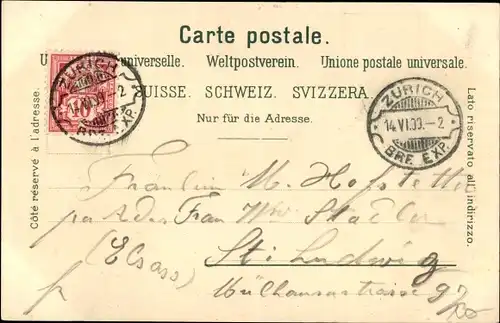 Carte postale.
universelle. Weltpostverein. Unione postale universale.
SUISSE. SCHWEIZ. SVIZZERA.
Nur für die Adresse.
Côté réservé à l'adresse.
Lato riservato all'indirizzo.
ZÜRICH
14.VI.99.-2
BRF. EXP.
10
ZÜRICH
14.VI.99.-2
BRF. EXP.
Fräulein M. Hofstetter
par Adr. Frau Wwe Stadler
St. Ludwig
(Elsass)
Mülhauserstrasse 97